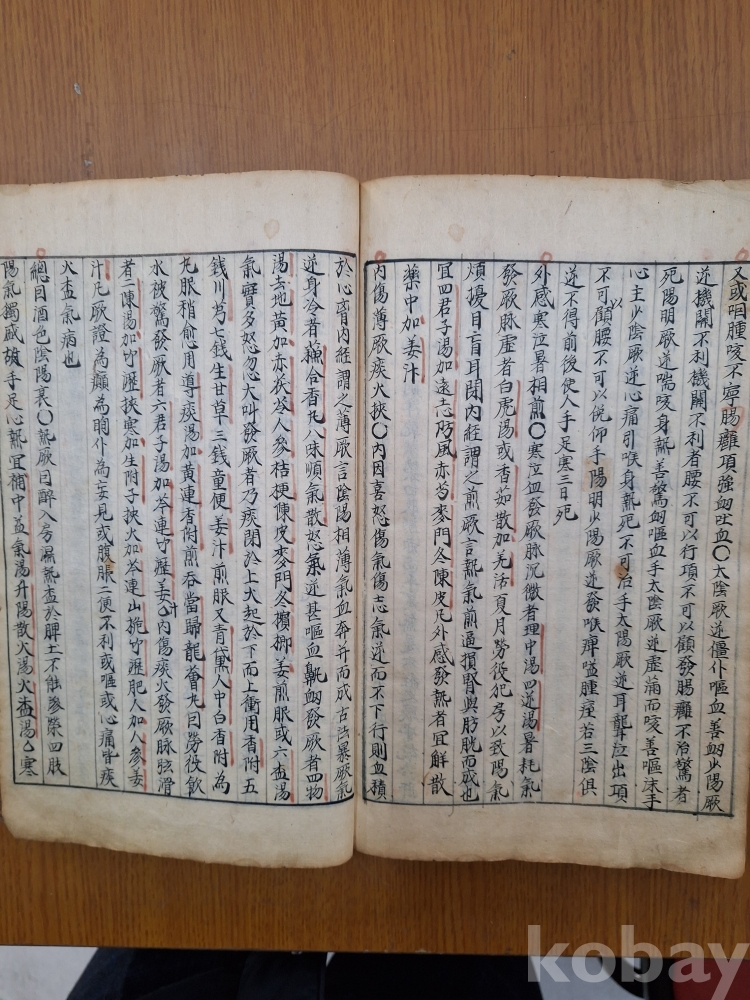 又或咽腫咳不寧腸癰項強衂吐血〇太陰厥逆僵仆嘔血善衂少陽厥
逆機關不利機關不利者腰不可以行項不可以顧發腸癰不治驚者
死陽明厥逆喘咳身熱善驚衂嘔血手太陰厥逆虛滿而咳善嘔沫手
心主少陰厥逆心痛引喉身熱死不可治手太陽厥逆耳聾泣出項
不可以顧腰不可以俛仰手陽明少陽厥逆發喉痺嗌腫痓若三陰俱
逆不得前後使人手足寒三日死
外感寒泣暑相煎〇寒泣血發厥脉沉微者理中湯四逆湯暑耗氣
發厥脉虛者白虎湯或香茹散加羌活夏月勞役犯房以致陽氣
煩擾目盲耳閉內經謂之煎厥言熱氣煎逼損腎與膀胱而成也
宜四君子湯加遠志防風赤芍麥門冬陳皮凡外感發熱者宜解散
藥中加姜汁
內傷薄厥痰火挾〇內因喜怒傷氣傷志氣逆而不下行則血積
於心胷內經謂之薄厥言陰陽相薄氣血奔并而成古法暴厥氣
逆身冷者蘓合香丸八味順氣散怒氣逆甚嘔血鼽衂發厥者四物
湯去地黃加赤茯苓人參桔梗陳皮麥門冬檳榔姜煎服或六盃湯
氣實多怒忽大叫發厥者乃痰閉於上火起於下而上衝用香附五
錢川芎七錢生甘草三錢童便姜汁煎服又青黛人中白香附為
丸服稍愈用導痰湯加黃連香附煎吞當歸龍薈丸因勞役飮
水被驚發厥者六君子湯加芩連竹瀝姜汁內傷痰火發厥脉弦滑
者二陳湯加竹瀝挾寒加生附子挾火加芩連山梔竹瀝肥人加人參姜
汁凡厥證為癲為癎仆為妄見或腹脹二便不利或嘔或心痛皆痰
火盃氣病也
總因酒色陰陽衰〇熱厥因醉入房濕熱盃於脾土不能滲榮四肢
陽氣獨盛故手足心熱宜補中益氣湯升陽散火湯火盃湯〇寒
kobay